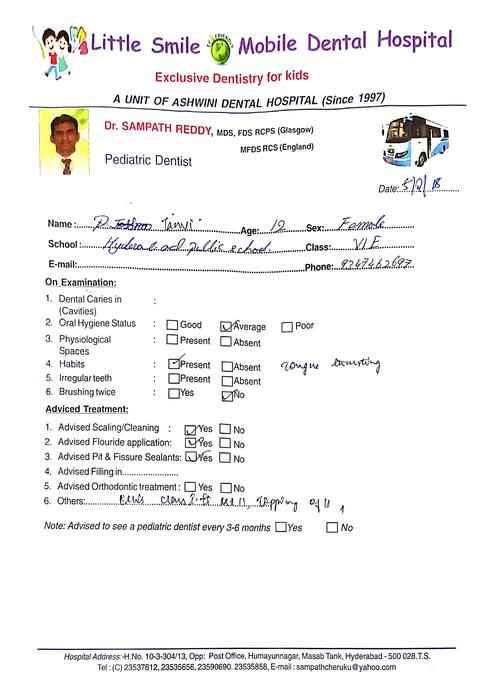 Little Smile Mobile Dental Hospital
Exclusive Dentistry for kids
A UNIT OF ASHWINI DENTAL HOSPITAL (Since 1997)
Dr. SAMPATH REDDY, MDS, FDS RCPS (Glasgow)
MFDS RCS (England)
Pediatric Dentist
Date: 5/2/18
Name: Tanvi Age: 12 Sex: Female
School: Hyderabad public school Class: VI E
E-mail: Phone: 9247462697
On Examination:
1. Dental Caries in :
(Cavities)
2. Oral Hygiene Status : Good Average Poor
3. Physiological : Present Absent
Spaces
4. Habits : Present Absent Tongue thrusting
5. Irregular teeth : Present Absent
6. Brushing twice : Yes No
Adviced Treatment:
1. Advised Scaling/Cleaning : Yes No
2. Advised Flouride application: Yes No
3. Advised Pit & Fissure Sealants: Yes No
4. Advised Filling in
5. Advised Orthodontic treatment : Yes No
6. Others:
Note: Advised to see a pediatric dentist every 3-6 months Yes No
Hospital Address:-H.No. 10-3-304/13, Opp: Post Office, Humayunnagar, Masab Tank, Hyderabad - 500 028.T.S.
Tel : (C) 23537612, 23535656, 23590690. 23535858, E-mail : sampathcheruku@yahoo.com